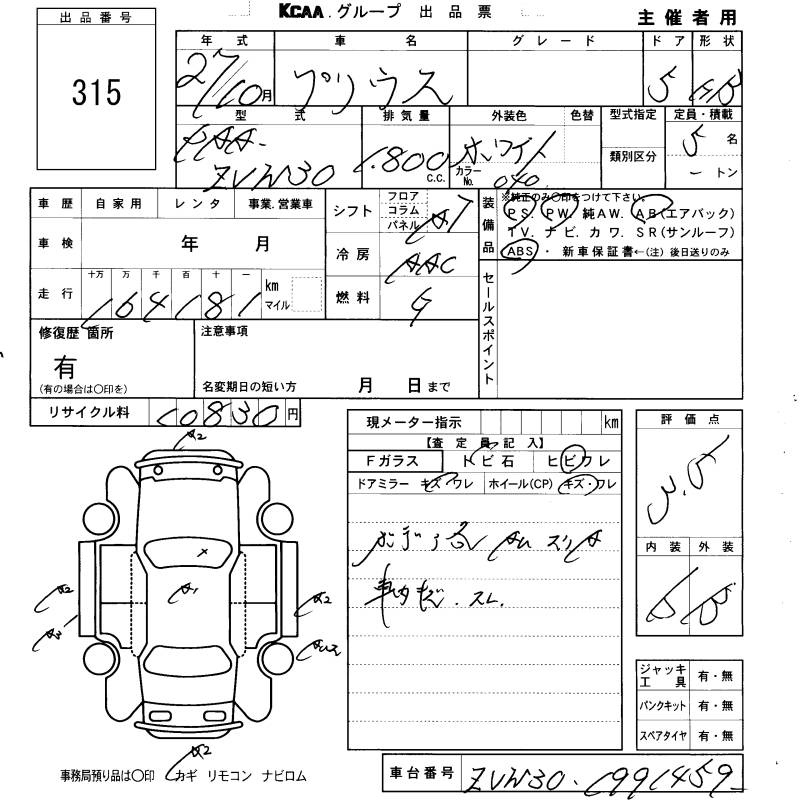 KCAA. グループ 出品票
主催者用
出品番号
315
年式 車名 グレード ドア 形状
27/10月 プリウス 5 HB
型式 排気量 外装色 色替 型式指定 定員・積載
DAA-ZVW30 1.800 c.c. ホワイト カラーNo. 040 類別区分 5名 ートン
車歴 自家用 レンタ 事業.営業車
シフト フロア コラム パネル AT
車検 年 月
冷房 AAC
走行 十万 万 千 百 十 一 164181 km マイル
燃料 G
装備品 ※純正のみ○印をつけて下さい。
PS. PW. 純AW. AB(エアバック)
TV. ナビ. カワ. SR(サンルーフ)
ABS・ 新車保証書←(注) 後日送りのみ
セールスポイント
修復歴 箇所
有
(有の場合は○印を)
注意事項
名変期日の短い方 月 日まで
リサイクル料 10830円
現メーター指示 km
【査定員記入】
Fガラス トビ石 ヒビワレ
ドアミラー キズ・ワレ ホイール(CP) キズ・ワレ
ボディ各 AU スリA
車内 スレ.
評価点
3.5
内装 外装
B
A2
A1
A2
A2
A2
ジャッキ工具 有・無
パンクキット 有・無
スペアタイヤ 有・無
事務局預り品は○印 カギ リモコン ナビロム
車台番号 ZVW30-1991459